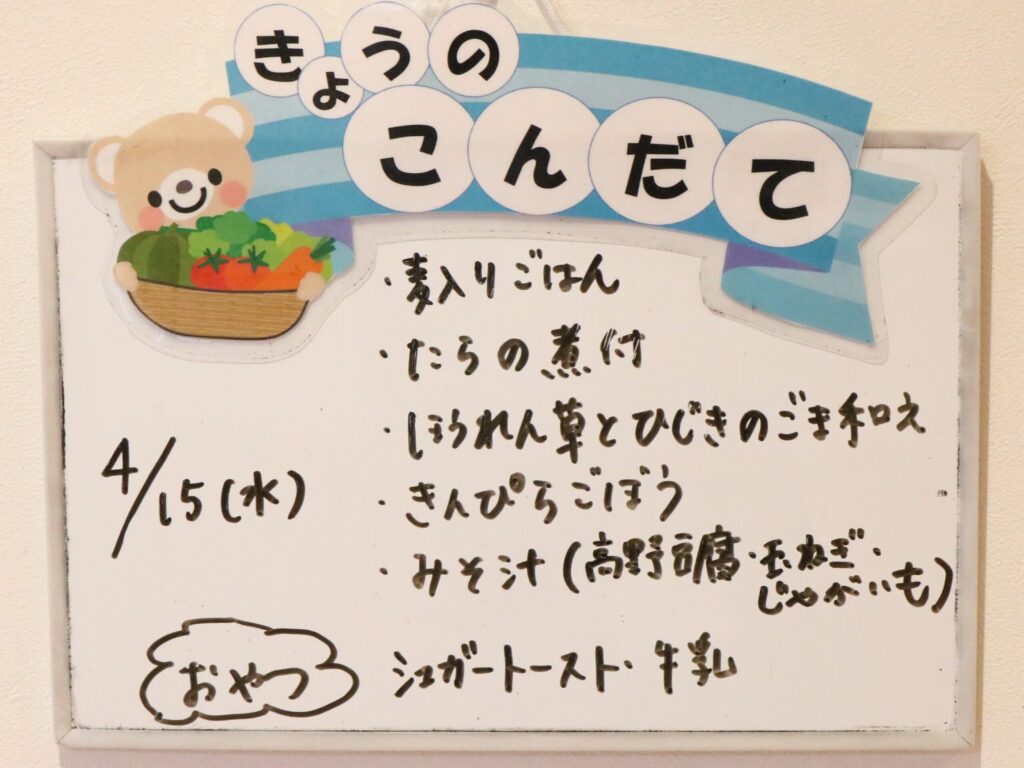 きょうの
こんだて
・麦入りごはん
・たらの煮付
・ほうれん草とひじきのごま和え
4/15(水)
・きんぴらごぼう
・みそ汁(高野豆腐・玉ねぎ・
じゃがいも)
おやつ
シュガートースト・牛乳